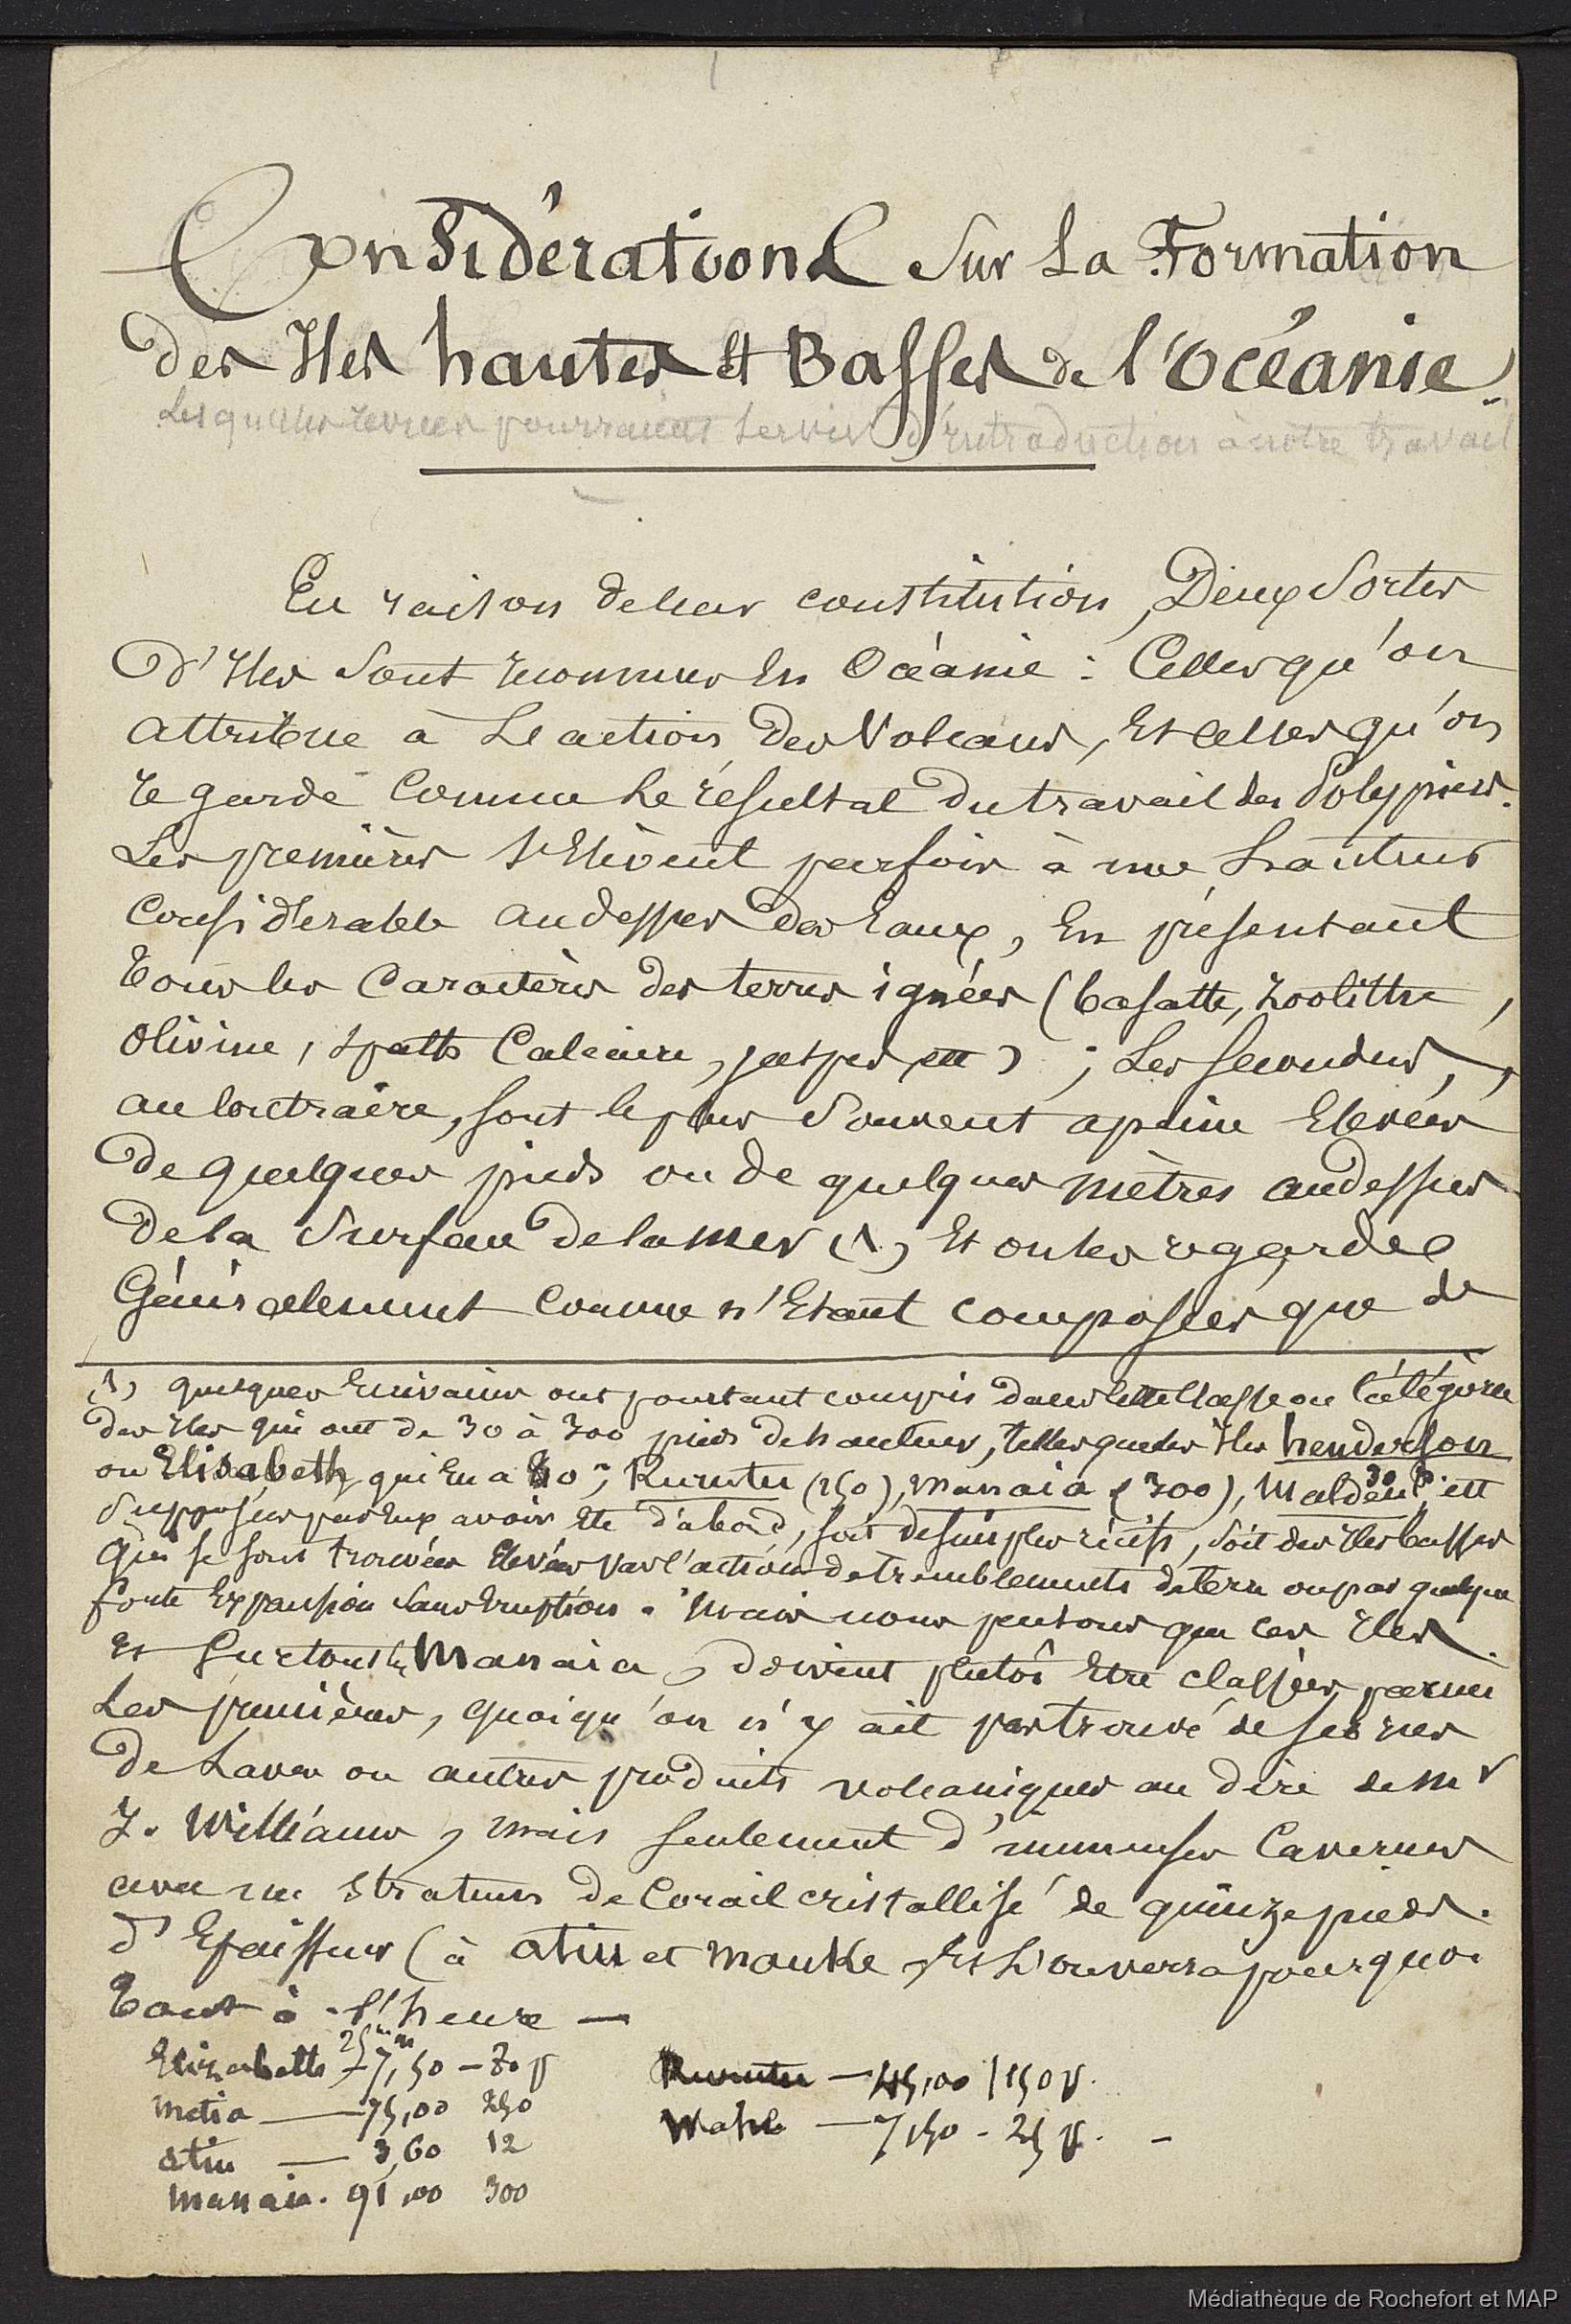 Considérations Sur La Formation
des Iles hautes et Basses de l'Océanie.
Lesquelles pourraient servir d'introduction à notre travail
En raison de leur constitution, Deux Sortes
D'Iles Sont reconnues En Océanie : Celles qu'on
attribue à L'action des Volcans, Et celles qu'on
regarde Comme Le résultat du travail des Polypiers.
Les premières s'Elèvent parfois à une hauteur
Considérable audessus des Eaux, En présentant
Tous les Caractères des terres ignées (basalte, zoolithe,
Olivine, spath Calcaire, jaspes, etc) ; Les secondes,
au contraire, sont le plus Souvent apeine Elevées
De quelques pieds ou de quelques mètres audessus
De la Surface de la mer (1), Et on les regarde
Généralement comme n'Etant composées que de
(1) quelques Ecrivains ont pourtant compris dans cette Classe ou Catégorie
des Iles qui ont de 30 à 300 pieds de hauteur, telles que les Iles henderson
ou Elisabeth, qui En a 80, Rurutu (150), Manaia (300), Malden 30 p. ett
Supposées par Eux avoir Eté d'abord, soit de simples récifs, Soit des Iles basses
qui se sont trouvées Elevées par l'action de tremblements de terre ou par quelque
forte Expansion Sans Eruption. Mais nous pensons que ces Iles
Et Surtout Manaia, doivent plutôt Etre classées parmi
Les premières, quoiqu'on n'y ait pas trouvé de
De Laves ou autres produits volcaniques au dire de Mr
J. Williams, mais seulement d'immenses Cavernes
avec un stratum de Corail cristallisé de quinze pieds.
d'Epaisseur (à atiu et mauke, Et L'on verra pourquoi
Tout à l'heure —
25 m
Elizabeth — 7,50 — 80 p
Metia — 75,00 250
atiu — 3,60 12
Manaia. 91,00 300
Rurutu — 45,00 / 150 p.
— 7,50 - 25 p. —
Médiathèque de Rochefort et MAP